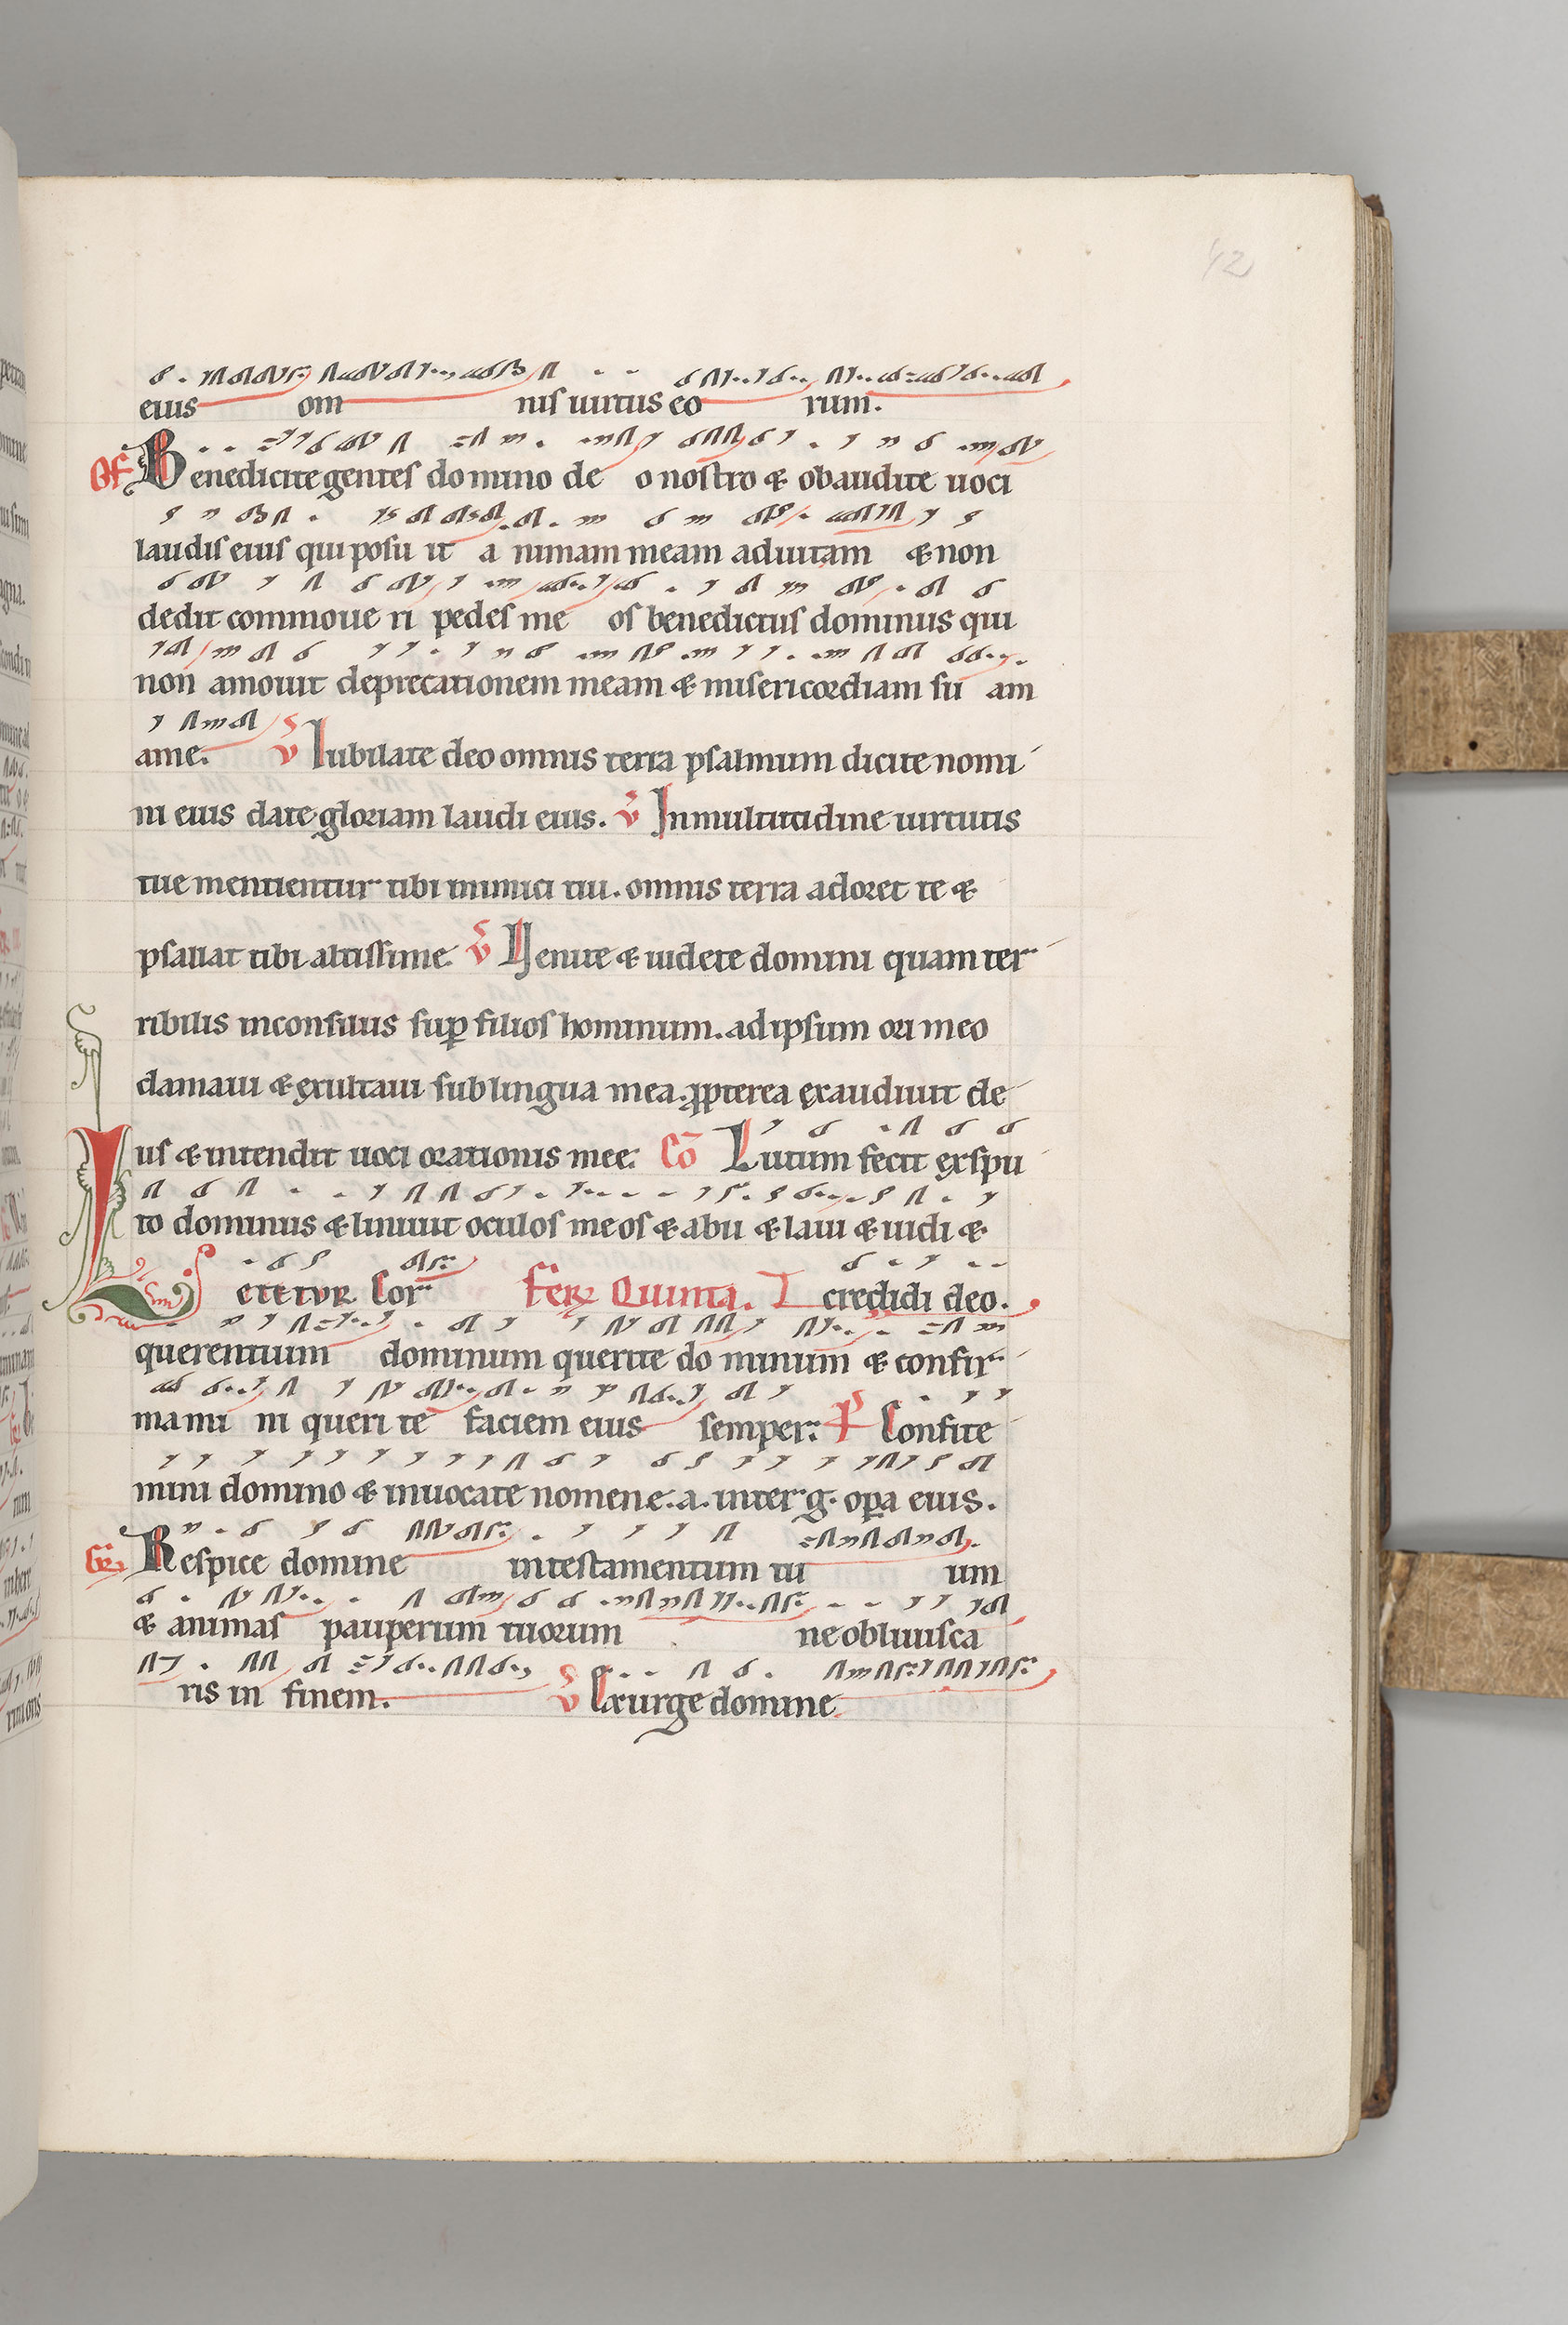 42
eius om nis uirtus eo rum.
OF Benedicite gentes domino de o nostro & obaudite uoci
laudis eius qui posu it a nimam meam ad uitam & non
dedit commoue ri pedes me os benedictus dominus qui
non amouit deprecationem meam & misericordiam su am
a me. v̄ Iubilate deo omnis terra psalmum dicite nomi
ni eius date gloriam laudi eius. v̄ In multitudine uirtutis
tue mentientur tibi inimici tui. omnis terra adoret te &
psallat tibi altissime. v̄ Uenite & uidete domini quam ter
ribilis in consiliis sup filios hominum. ad ipsum ori meo
clamaui & exultaui sub lingua mea. ppterea exaudiuit de
us & intendit uoci orationis mee. Co Lutum fecit ex spu
to dominus & liniuit oculos meos & abii & laui & uidi &
credidi deo.
Fer Quinta. Letetur cor
querentium dominum querite do minum & confir
mami ni queri te faciem eius semper: P Confite
mini domino & inuocate nomen e. a. inter g. opa eius.
Gr. Respice domine in testamentum tu um
& animas pauperum tuorum ne obliuisca
ris in finem. v̄ Exurge domine